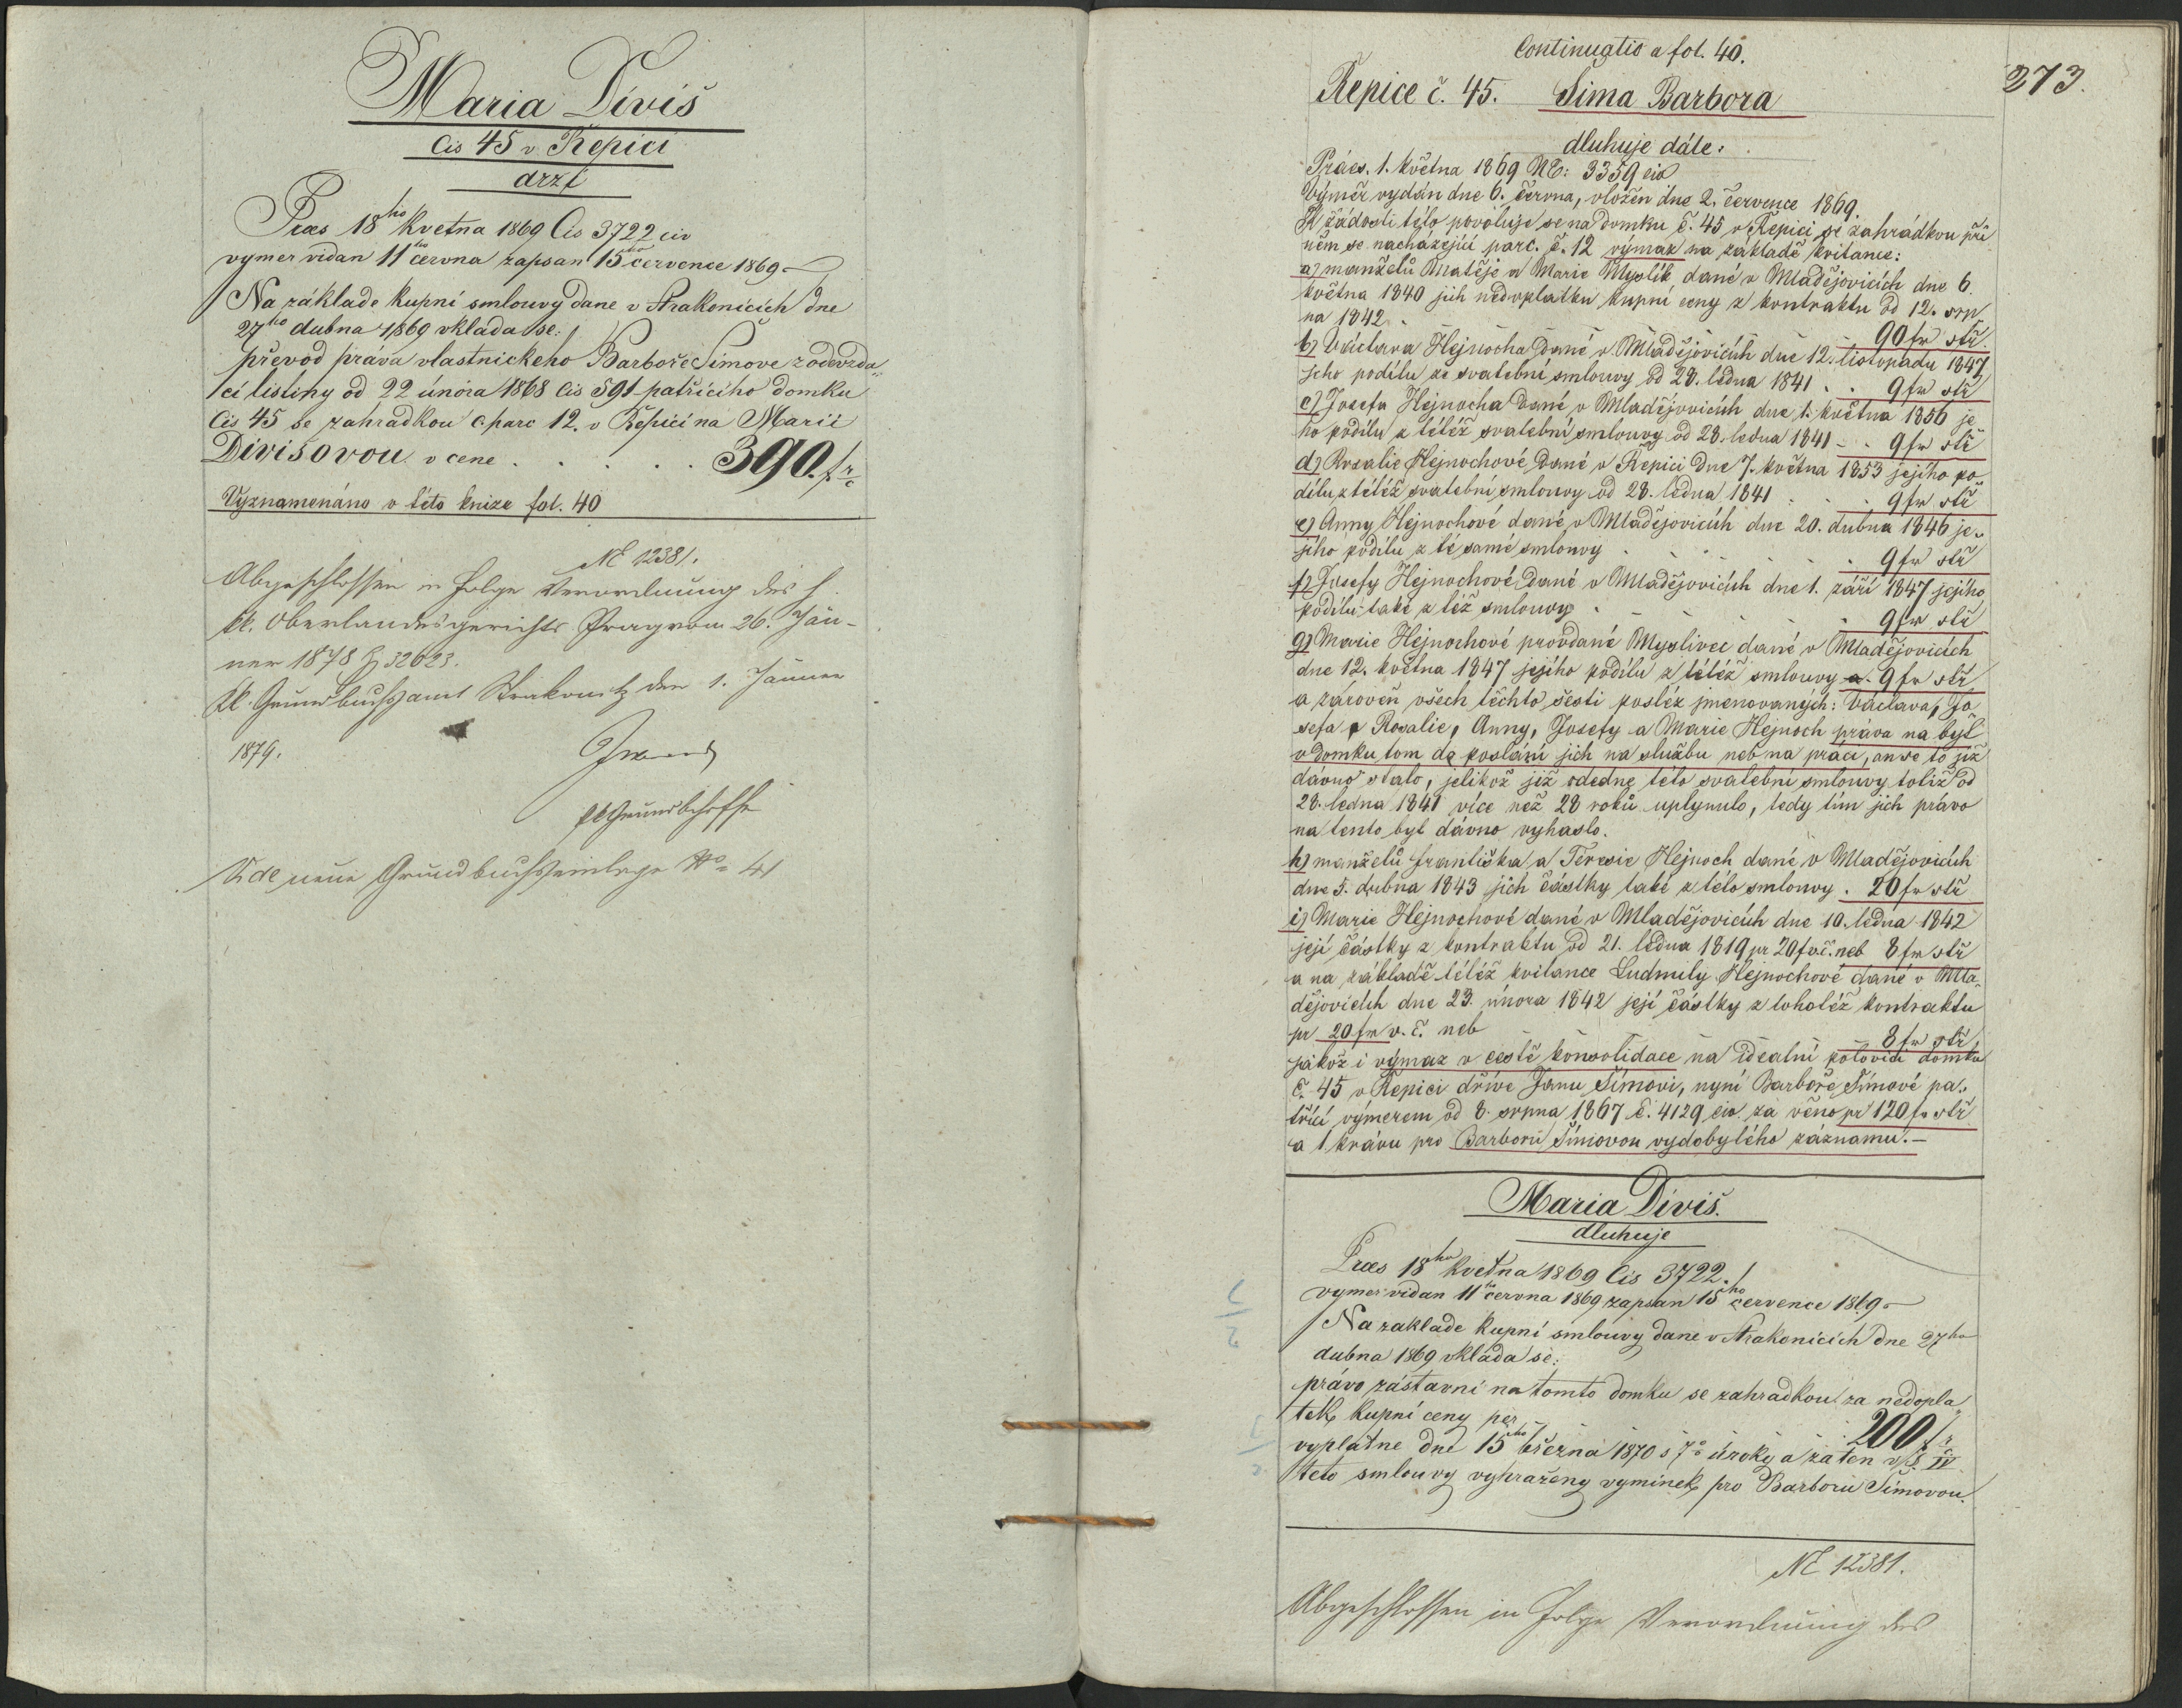 Maria Diviš
Čis 45 v Řepici
drží
Præs 18ho kvetna 1869 Čis 3722 civ
vymer vidan 11ho června zapsan 15ho července 1869 –
Na základe kupní smlouvy dane v Strakonicích dne
27ho dubna 1869 vklada se:
převod práva vlastnickeho Barboře Šimove z odevzda„
cí listiny od 22 února 1868 čis 591 patřícího domku
čis 45 se zahradkou č. parc 12. v Řepici na Marii
Divišovou v cene . . . . . 390. fr
Vyznamenáno v této knize fol. 40
NE 12381.
Abgeschlossen in Folge Verordnung des h.
kk. Oberlandesgerichts Prag vom 26. Jän-
ner 1878 Z 32623.
kk. Grundbuchsamt Strakonitz den 1. Jänner
1879.
Vide neue Grundbuchseinlage No 41
Continuatio a fol. 40.
273.
Řepice č. 45. Šima Barbora
dluhuje dále:
Präes. 1. května 1869 NE: 3359 civ
Výměr vydán dne 6. června, vložen dne 2. července 1869.
K žádosti této povoluje se na domku č. 45 v Řepici se zahrádkou při
něm se nacházející parc. č. 12 výmaz na základě kvitance:
a) manželů Matěje a Marie Myslík dané v Mladějovicích dne 6.
května 1840 jich nedoplatku kupní ceny z kontraktu od 12. srp
na 1842 . 90 fr stř.
b) Václava Hejnocha dané v Mladějovicích dne 12. listopadu 1847
jeho podílu ze svatební smlouvy od 28. ledna 1841 . . 9 fr stř
c) Josefa Hejnocha dané v Mladějovicích dne 1. května 1856 je„
ho podílu z téléž svatební smlouvy od 28. ledna 1841 – . 9 fr stř
d) Rozalie Hejnochové dané v Řepici dne 7. května 1853 jejího po„
dílu z téléž svatební smlouvy od 28. ledna 1841 . . . 9 fr stř
e) Anny Hejnochové dané v Mladějovicích dne 20. dubna 1846 je„
jího podílu z té samé smlouvy . . . . . 9 fr stř
f) Josefy Hejnochové dané v Mladějovicích dne 1. září 1847 jejího
podílu také z též smlouvy . . . . . 9 fr stř
g) Marie Hejnochové provdané Myslivec dané v Mladějovicích
dne 12. května 1847 jejího podílu z téléž smlouvy a. 9 fr stř
a zároveň všech těchto šesti posléz jmenovaných: Václava, Jo
sefa, Rosalie, Anny, Josefy a Marie Hejnoch práva na byt
v domku tom do poslání jich na službu neb na práci, an se to již
dávno stalo, jelikož již odedne této svatební smlouvy totiž od
28. ledna 1841 více než 28 roků uplynulo, tedy tím jich právo
na tento byt dávno vyhaslo.
h) manželů Františka a Teresie Hejnoch dané v Mladějovicích
dne 5. dubna 1843 jich částky také z této smlouvy . 20 fr stř
i) Marie Hejnochové dané v Mladějovicích dne 10. ledna 1842
její částky z kontraktu od 21. ledna 1819 pr 20 f v.č. neb 8 fr stř
a na základě téléž kvitance Ludmily Hejnochové dané v Mla„
dějovicích dne 23. února 1842 její částky z tohotéž kontraktu
pr 20 fr v. č. neb 8 fr stř,
jakož i výmaz v cestě konsolidace na idealní polovici domku
č. 45 v Řepici dříve Janu Šímovi, nyní Barboře Šímové pa„
třící výmerem od 8. srpna 1867 č. 4129 civ. za věno pr 120 fr stř
a 1 krávu pro Barboru Šímovou vydobytého záznamu. –
Maria Diviš.
dluhuje
Præs 18ho kvetna 1869 čis 3722. /
vymer vidan 11ho června 1869 zapsan 15ho července 1869 –
Na zaklade kupní smlouvy dane v Strakonicích dne 27ho
dubna 1869 vklada se:
právo zástavní na tomto domku se zahradkou za nedopla„
tek kupní ceny per . . 200 fr
vyplatne dne 15ho března 1870 s 7% úroky a za ten v § IV
teto smlouvy vyhraženy vyminek pro Barboru Šimovou.
NE 12381.
Abgeschlossen in Folge Verordnung des